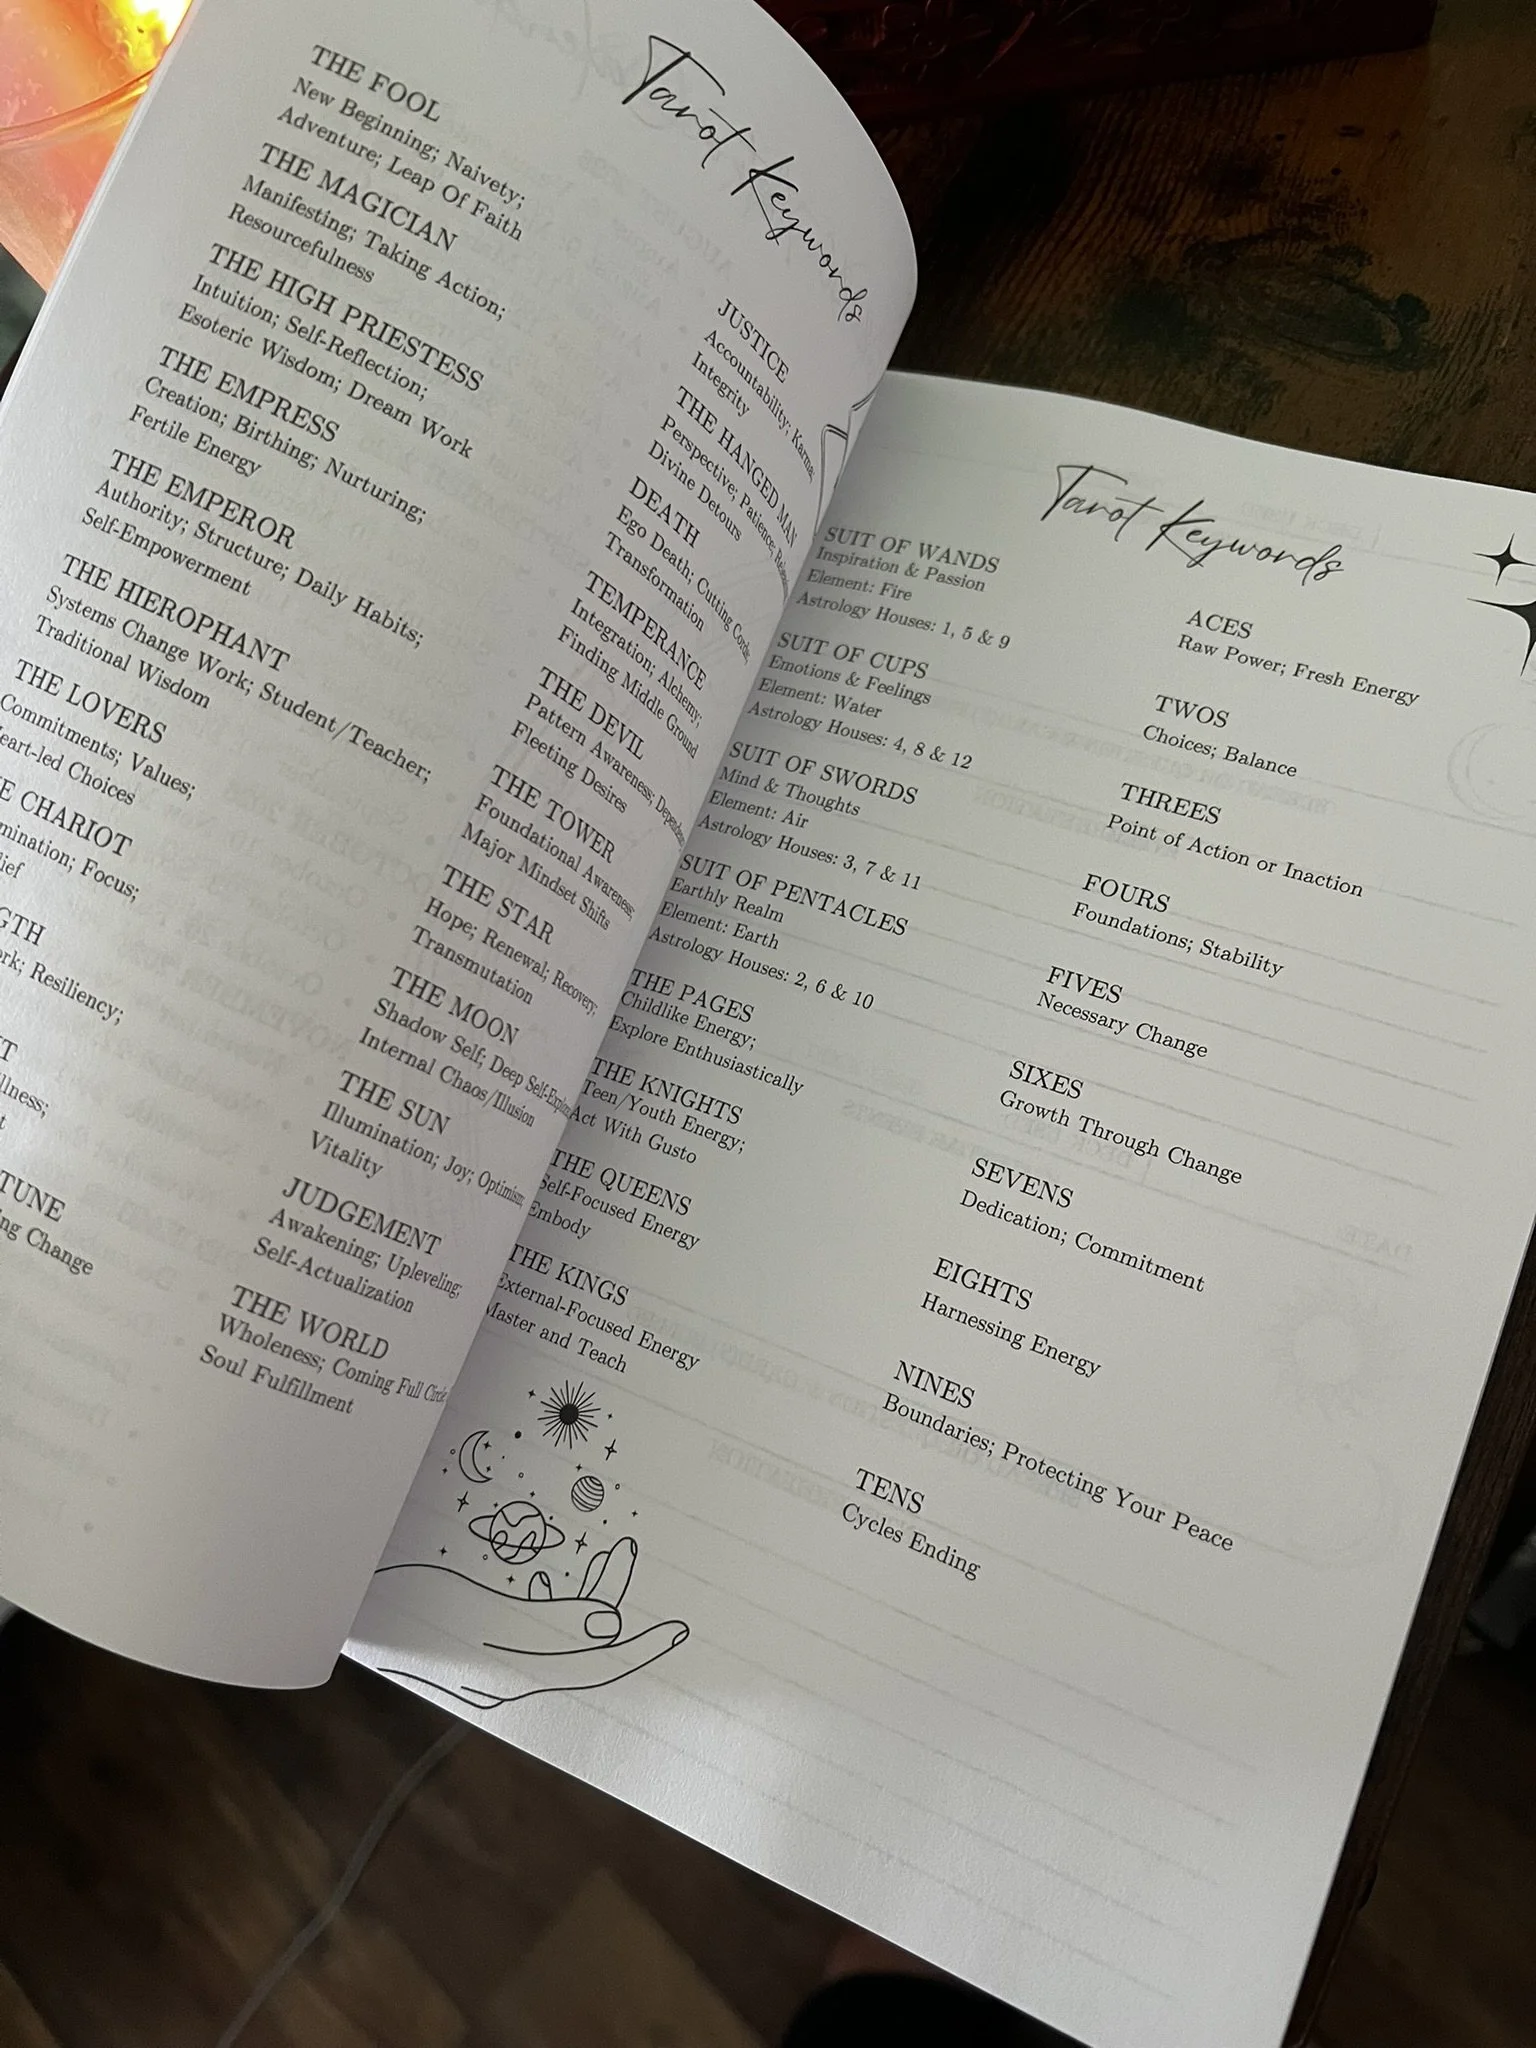 Tarot Keywords
THE FOOL
New Beginning; Naivety;
Adventure; Leap Of Faith
THE MAGICIAN
Manifesting; Taking Action;
Resourcefulness
THE HIGH PRIESTESS
Intuition; Self-Reflection;
Esoteric Wisdom; Dream Work
THE EMPRESS
Creation; Birthing; Nurturing;
Fertile Energy
THE EMPEROR
Authority; Structure; Daily Habits;
Self-Empowerment
THE HIEROPHANT
Systems Change Work; Student/Teacher;
Traditional Wisdom
THE LOVERS
Commitments; Values;
Choices
CHARIOT
Focus;
Resiliency;
Change
JUSTICE
Accountability; Karma;
Integrity
THE HANGED MAN
Perspective; Patience;
Divine Detours
DEATH
Ego Death; Cutting Cords;
Transformation
TEMPERANCE
Integration; Alchemy;
Finding Middle Ground
THE DEVIL
Pattern Awareness;
Fleeting Desires
THE TOWER
Foundational Awareness;
Major Mindset Shifts
THE STAR
Hope; Renewal; Recovery;
Transmutation
THE MOON
Shadow Self; Deep
Internal Chaos/Illusion
THE SUN
Illumination; Joy; Optimism;
Vitality
JUDGEMENT
Awakening; Upleveling;
Self-Actualization
THE WORLD
Wholeness; Coming Full Circle
Soul Fulfillment
Tarot Keywords
SUIT OF WANDS
Inspiration & Passion
Element: Fire
Astrology Houses: 1, 5 & 9
SUIT OF CUPS
Emotions & Feelings
Element: Water
Astrology Houses: 4, 8 & 12
SUIT OF SWORDS
Mind & Thoughts
Element: Air
Astrology Houses: 3, 7 & 11
SUIT OF PENTACLES
Earthly Realm
Element: Earth
Astrology Houses: 2, 6 & 10
THE PAGES
Childlike Energy;
Explore Enthusiastically
THE KNIGHTS
Teen/Youth Energy;
Act With Gusto
THE QUEENS
Self-Focused Energy
Embody
THE KINGS
External-Focused Energy
Master and Teach
ACES
Raw Power; Fresh Energy
TWOS
Choices; Balance
THREES
Point of Action or Inaction
FOURS
Foundations; Stability
FIVES
Necessary Change
SIXES
Growth Through Change
SEVENS
Dedication; Commitment
EIGHTS
Harnessing Energy
NINES
Boundaries; Protecting Your Peace
TENS
Cycles Ending